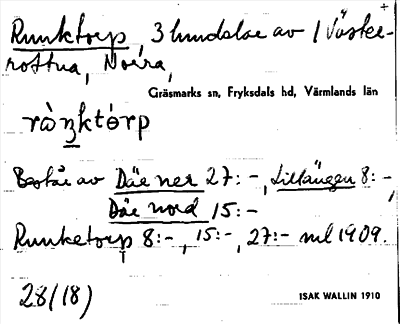 Runktorp, 3 hundelar av 1 Väster-
rottna, Norra,
Gräsmarks sn, Fryksdals hd, Värmlands län
rànktórp
Består av Där ner 27:-, Lillängen 8:-,
Där nord 15:-
Runketorp 8:-, 15:-, 27:- ml 1909.
28/(18)
ISAK WALLIN 1910